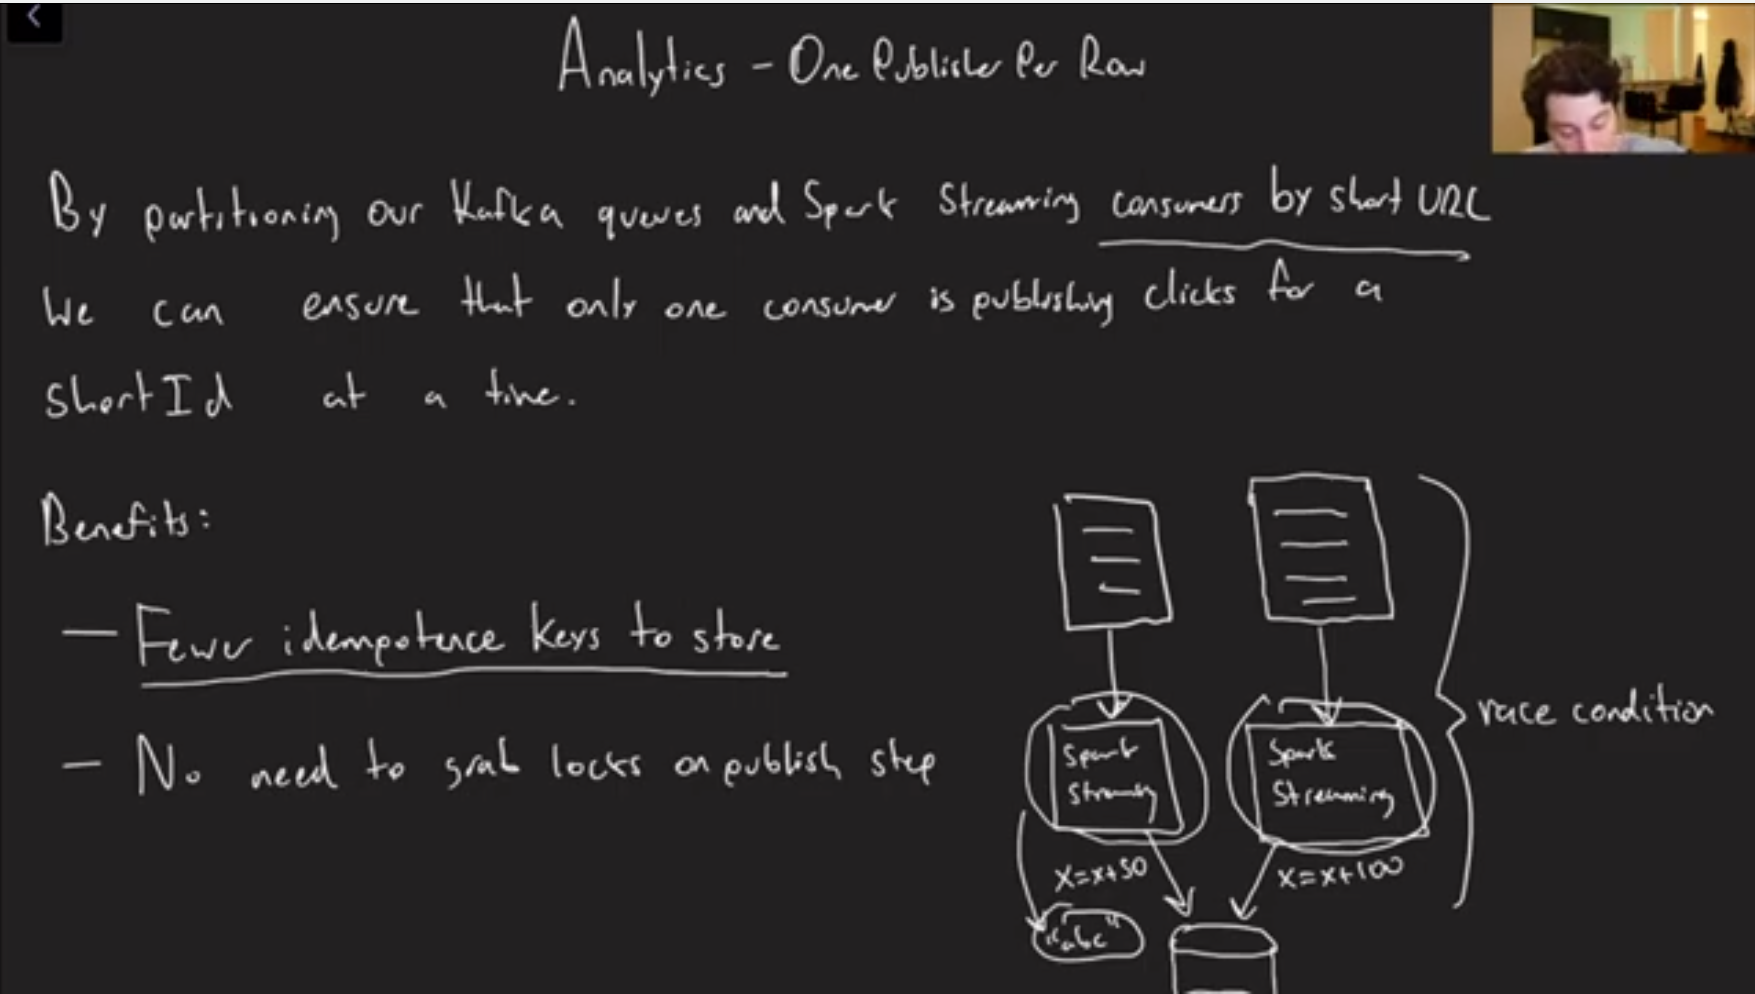 Analytics - One Publisher Per Row
By partitioning our Kafka queues and Spark Streaming consumers by short URL
We can ensure that only one consumer is publishing clicks for a
shortId at a time.
Benefits:
— Fewer idempotence keys to store
— No need to grab locks on publish step
Spark
Streaming
x=x+50
"abc"
Spark
Streaming
x=x+100
race condition